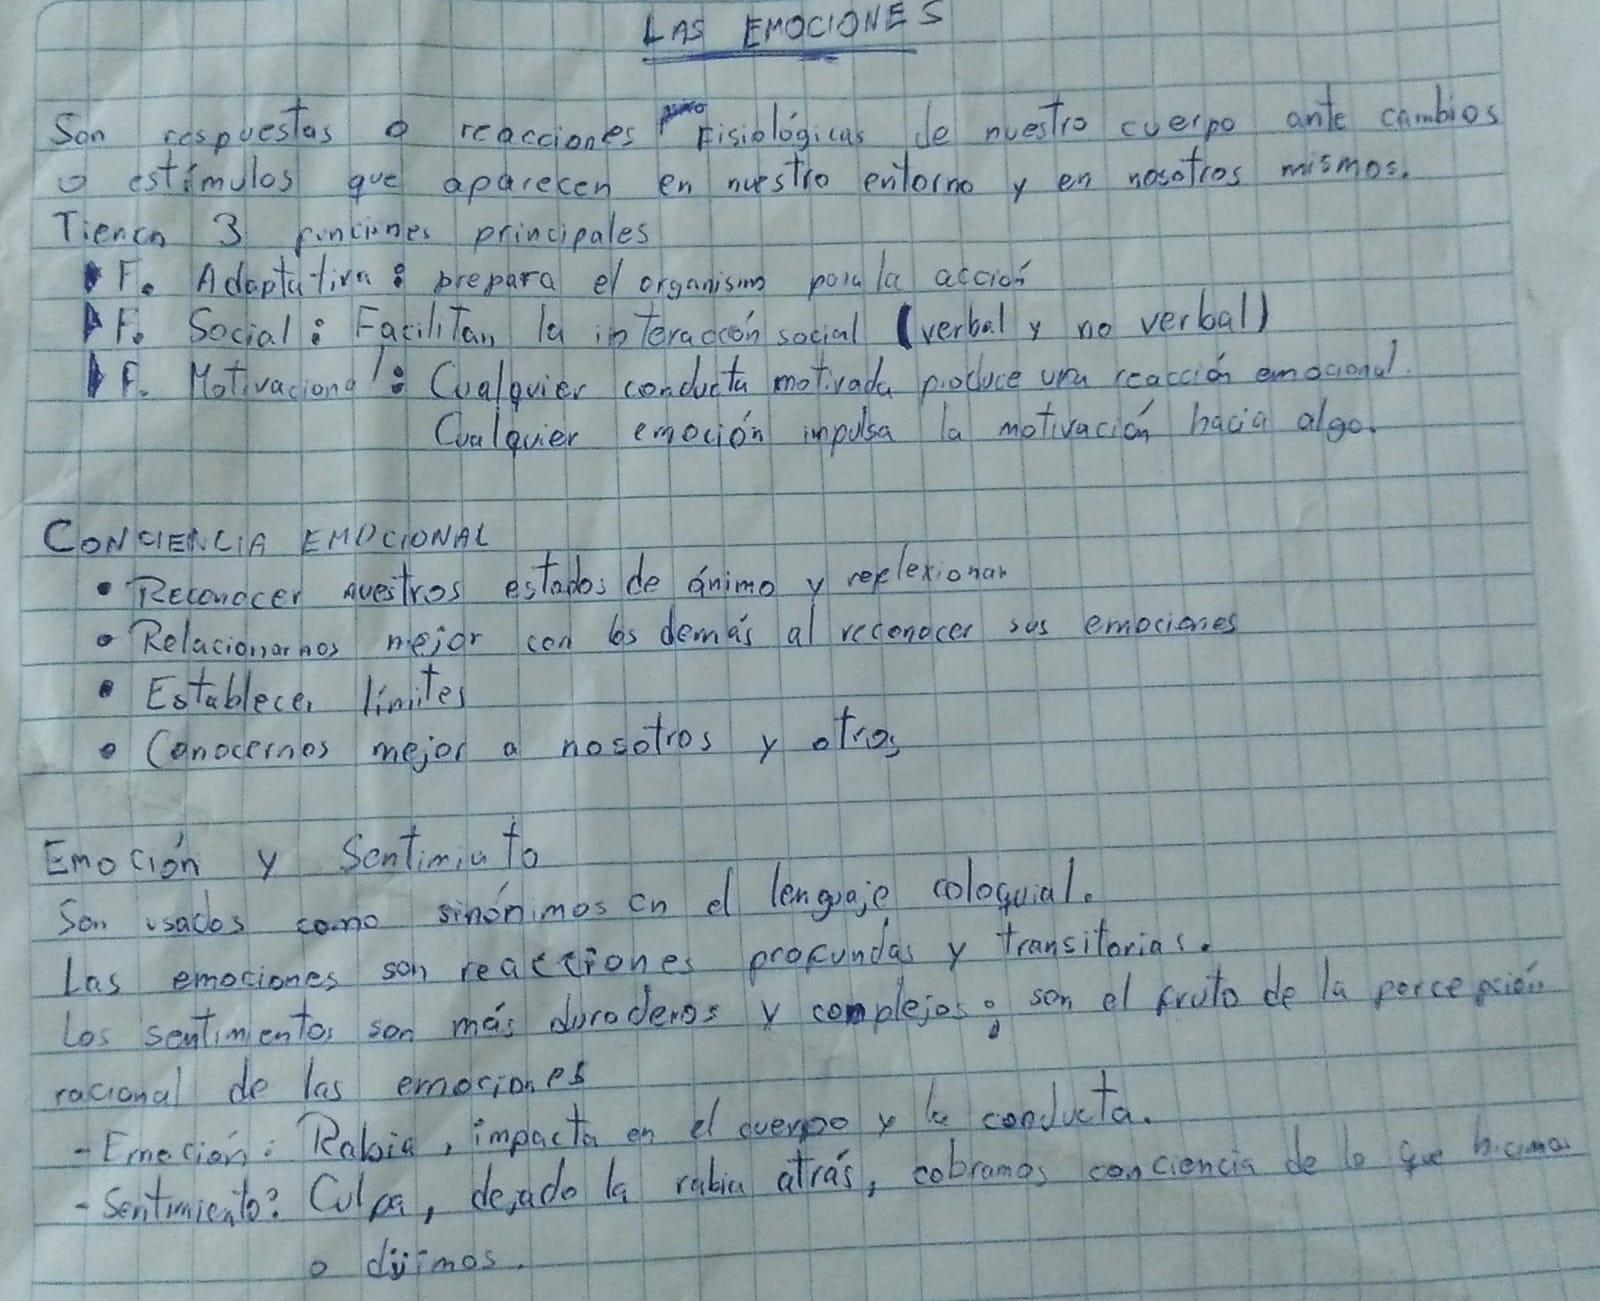 LAS EMOCIONES
Son respuestas o reacciones Fisiológicas de nuestro cuerpo ante cambios
o estímulos que aparecen en nuestro entorno y en nosotros mismos.
Tienen 3 funciones principales
F. Adaptativa: prepara el organismo para la acción
F. Social: Facilitan la interacción social (verbal y no verbal)
F. Motivacional: Cualquier conducta motivada produce una reacción emocional.
Cualquier emoción impulsa la motivación hacia algo.
CONCIENCIA EMOCIONAL
• Reconocer nuestros estados de ánimo y reflexionar
• Relacionarnos mejor con los demás al reconocer sus emociones
• Establecer límites
• Conocernos mejor a nosotros y otros
Emoción y Sentimiento
Son usados como sinónimos en el lenguaje coloquial.
Las emociones son reacciones profundas y transitorias.
Los sentimientos son más duraderos y complejos; son el fruto de la percepción
racional de las emociones
- Emoción: Rabia, impacta en el cuerpo y la conducta.
- Sentimiento: Culpa, dejado la rabia atrás, cobramos conciencia de lo que hicimos
o dijimos.